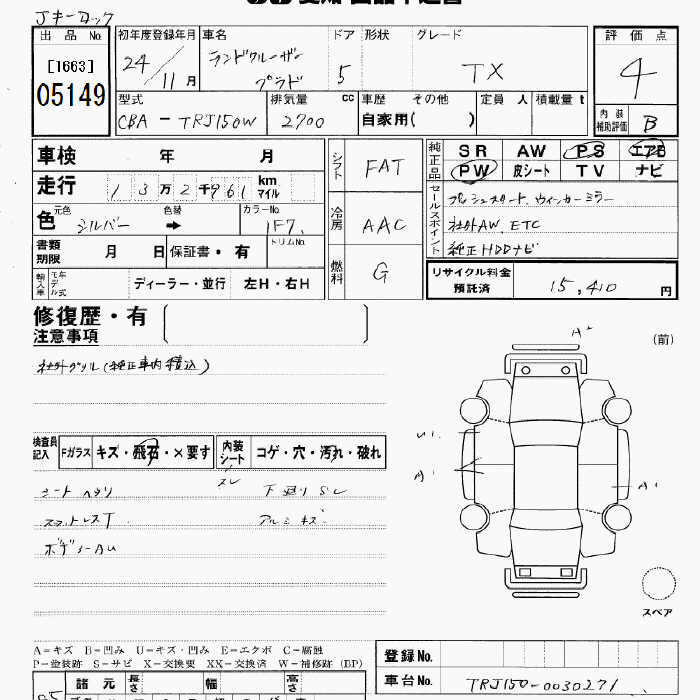 Jキーロック
出品No. 初年度登録年月 車名 ドア 形状 グレード 評価点
[1663] 24/11月 ランドクルーザー プラド 5 TX 4
05149 型式 排気量 cc 車歴 その他 定員 人 積載量 t 内装補助評価 B
CBA-TRJ150W 2700 自家用( )
車検 年 月 シフト FAT 純正品 SR AW PS エアB
PW 皮シート TV ナビ
走行 13万2千961 km マイル
セールスポイント プッシュスタート、ウィンカーミラー
色 元色 シルバー 色替 ➡ カラーNo. 1F7 冷房 AAC 社外AW、ETC
書類期限 月 日 保証書・有 トリムNo. 純正HDDナビ
輸入車 モデル年式 ディーラー・並行 左H・右H 燃料 G リサイクル料金預託済 15,410 円
修復歴・有
注意事項
社外グリル(純正車内積込)
A2
(前)
検査員記入 Fガラス キズ・飛石・×要す 内装シート コゲ・穴・汚れ・破れ
スレ
U1
A1
A1
シートヘタリ 下廻りSU
アルミキズ
ボデーAU
スペア
A=キズ B=凹み U=キズ・凹み E=エクボ C=腐蝕
P=塗装跡 S=サビ X=交換要 XX=交換済 W=補修跡(BP)
登録No.
車台No. TRJ150-0030271
諸元 長さ 幅 高さ